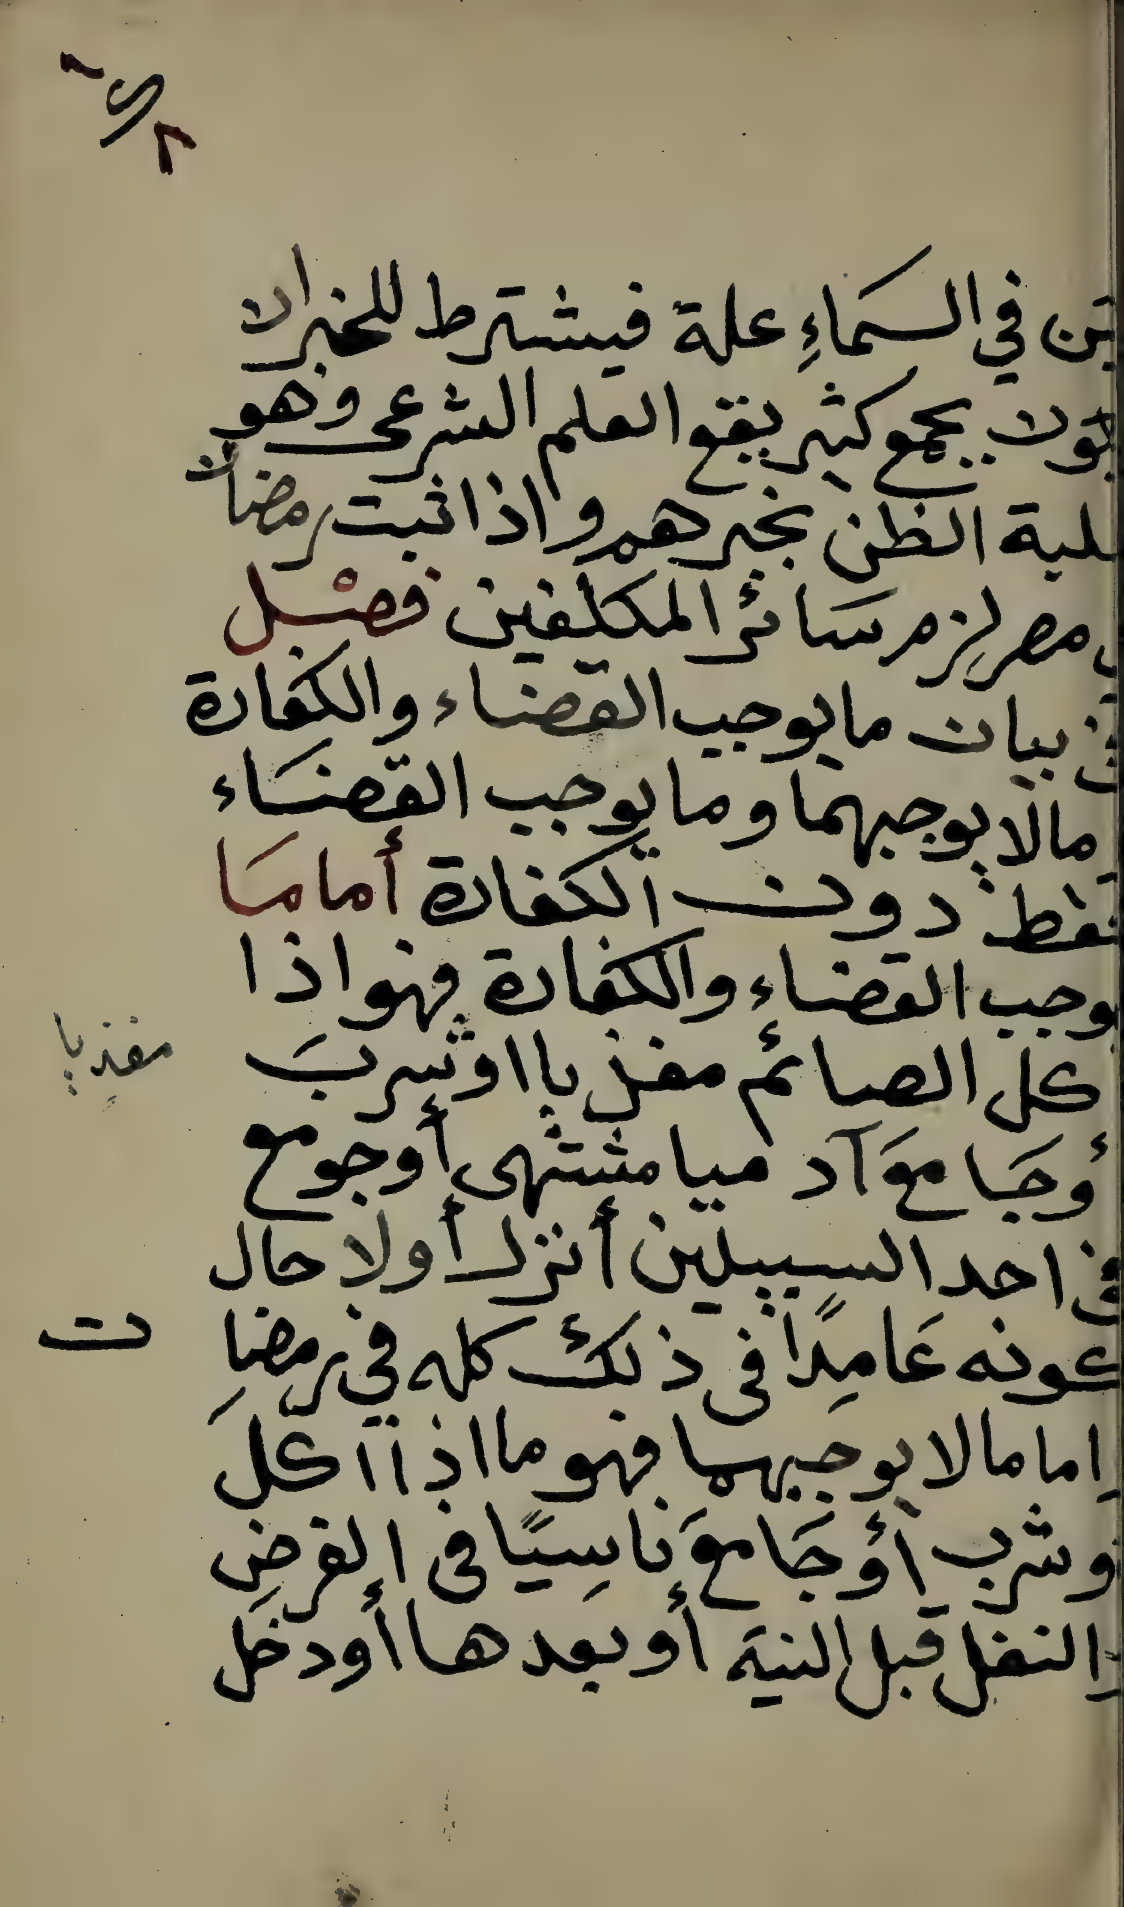 في السماءِ علة فيشترط للخبر ان
بجمع كثير يقع العلم الشرعى وهو
الظن بخبرهم واذا ثبت رمضان
مصر لزم سَائر المكلفين فصْل
بيان ما يوجب القضاء والكفارة
مالا يوجبهما وما يوجب القضَاء
دون الكفارة أما مَا
القضاء والكفارة فهو اذا
كل الصائم مغذيا اوشربَ
أو جَامعَ آدميا مشتهى أو جومع
احد السبيلين أنزل أولا حال
عامِدًا فى ذلك كله في رمضاِ
اما مالا يوجبهما فهو ما اذا اكلَ
وشرب أو جَامعَ ناسِيًا فى الفرضِ
النفل قبل النية أو بعدها أو دخَل
مغذيا
ن